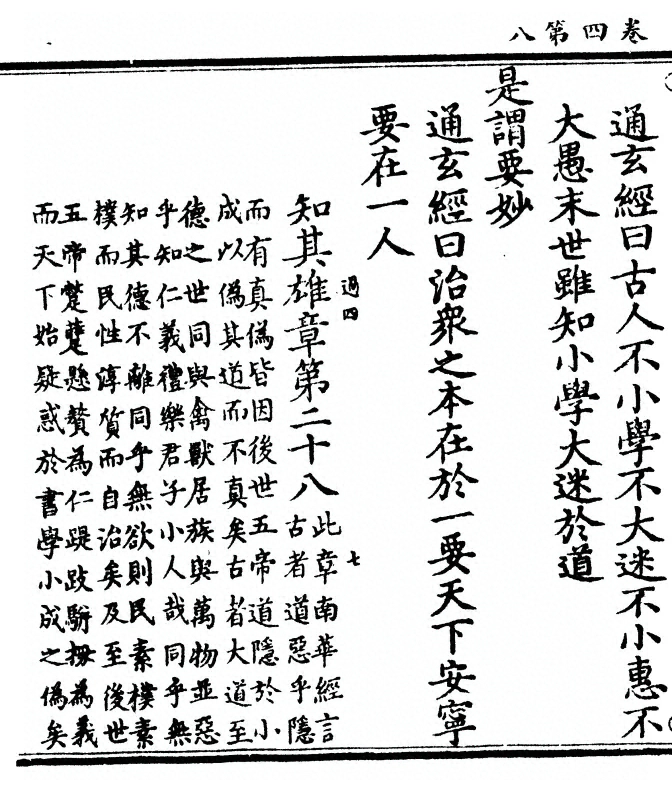 卷四第八
通玄經曰古人不小學不大迷不小惠不
大愚末世雖知小學大迷於道
是謂要妙
通玄經曰治衆之本在於一要天下安寧
要在一人
過四 七
知其雄章第二十八
此章南華經言
古者道惡乎隱
而有真偽皆因後世五帝道隱於小
成以偽其道而不真矣古者大道至
德之世同與禽獸居族與萬物並惡
乎知仁義禮樂君子小人哉同乎無
知其德不離同乎無欲則民素樸素
樸而民性淳質而自治矣及至後世
五帝蹩躠懸贅為仁踶跂駢拇為義
而天下始疑惑於書學小成之偽矣